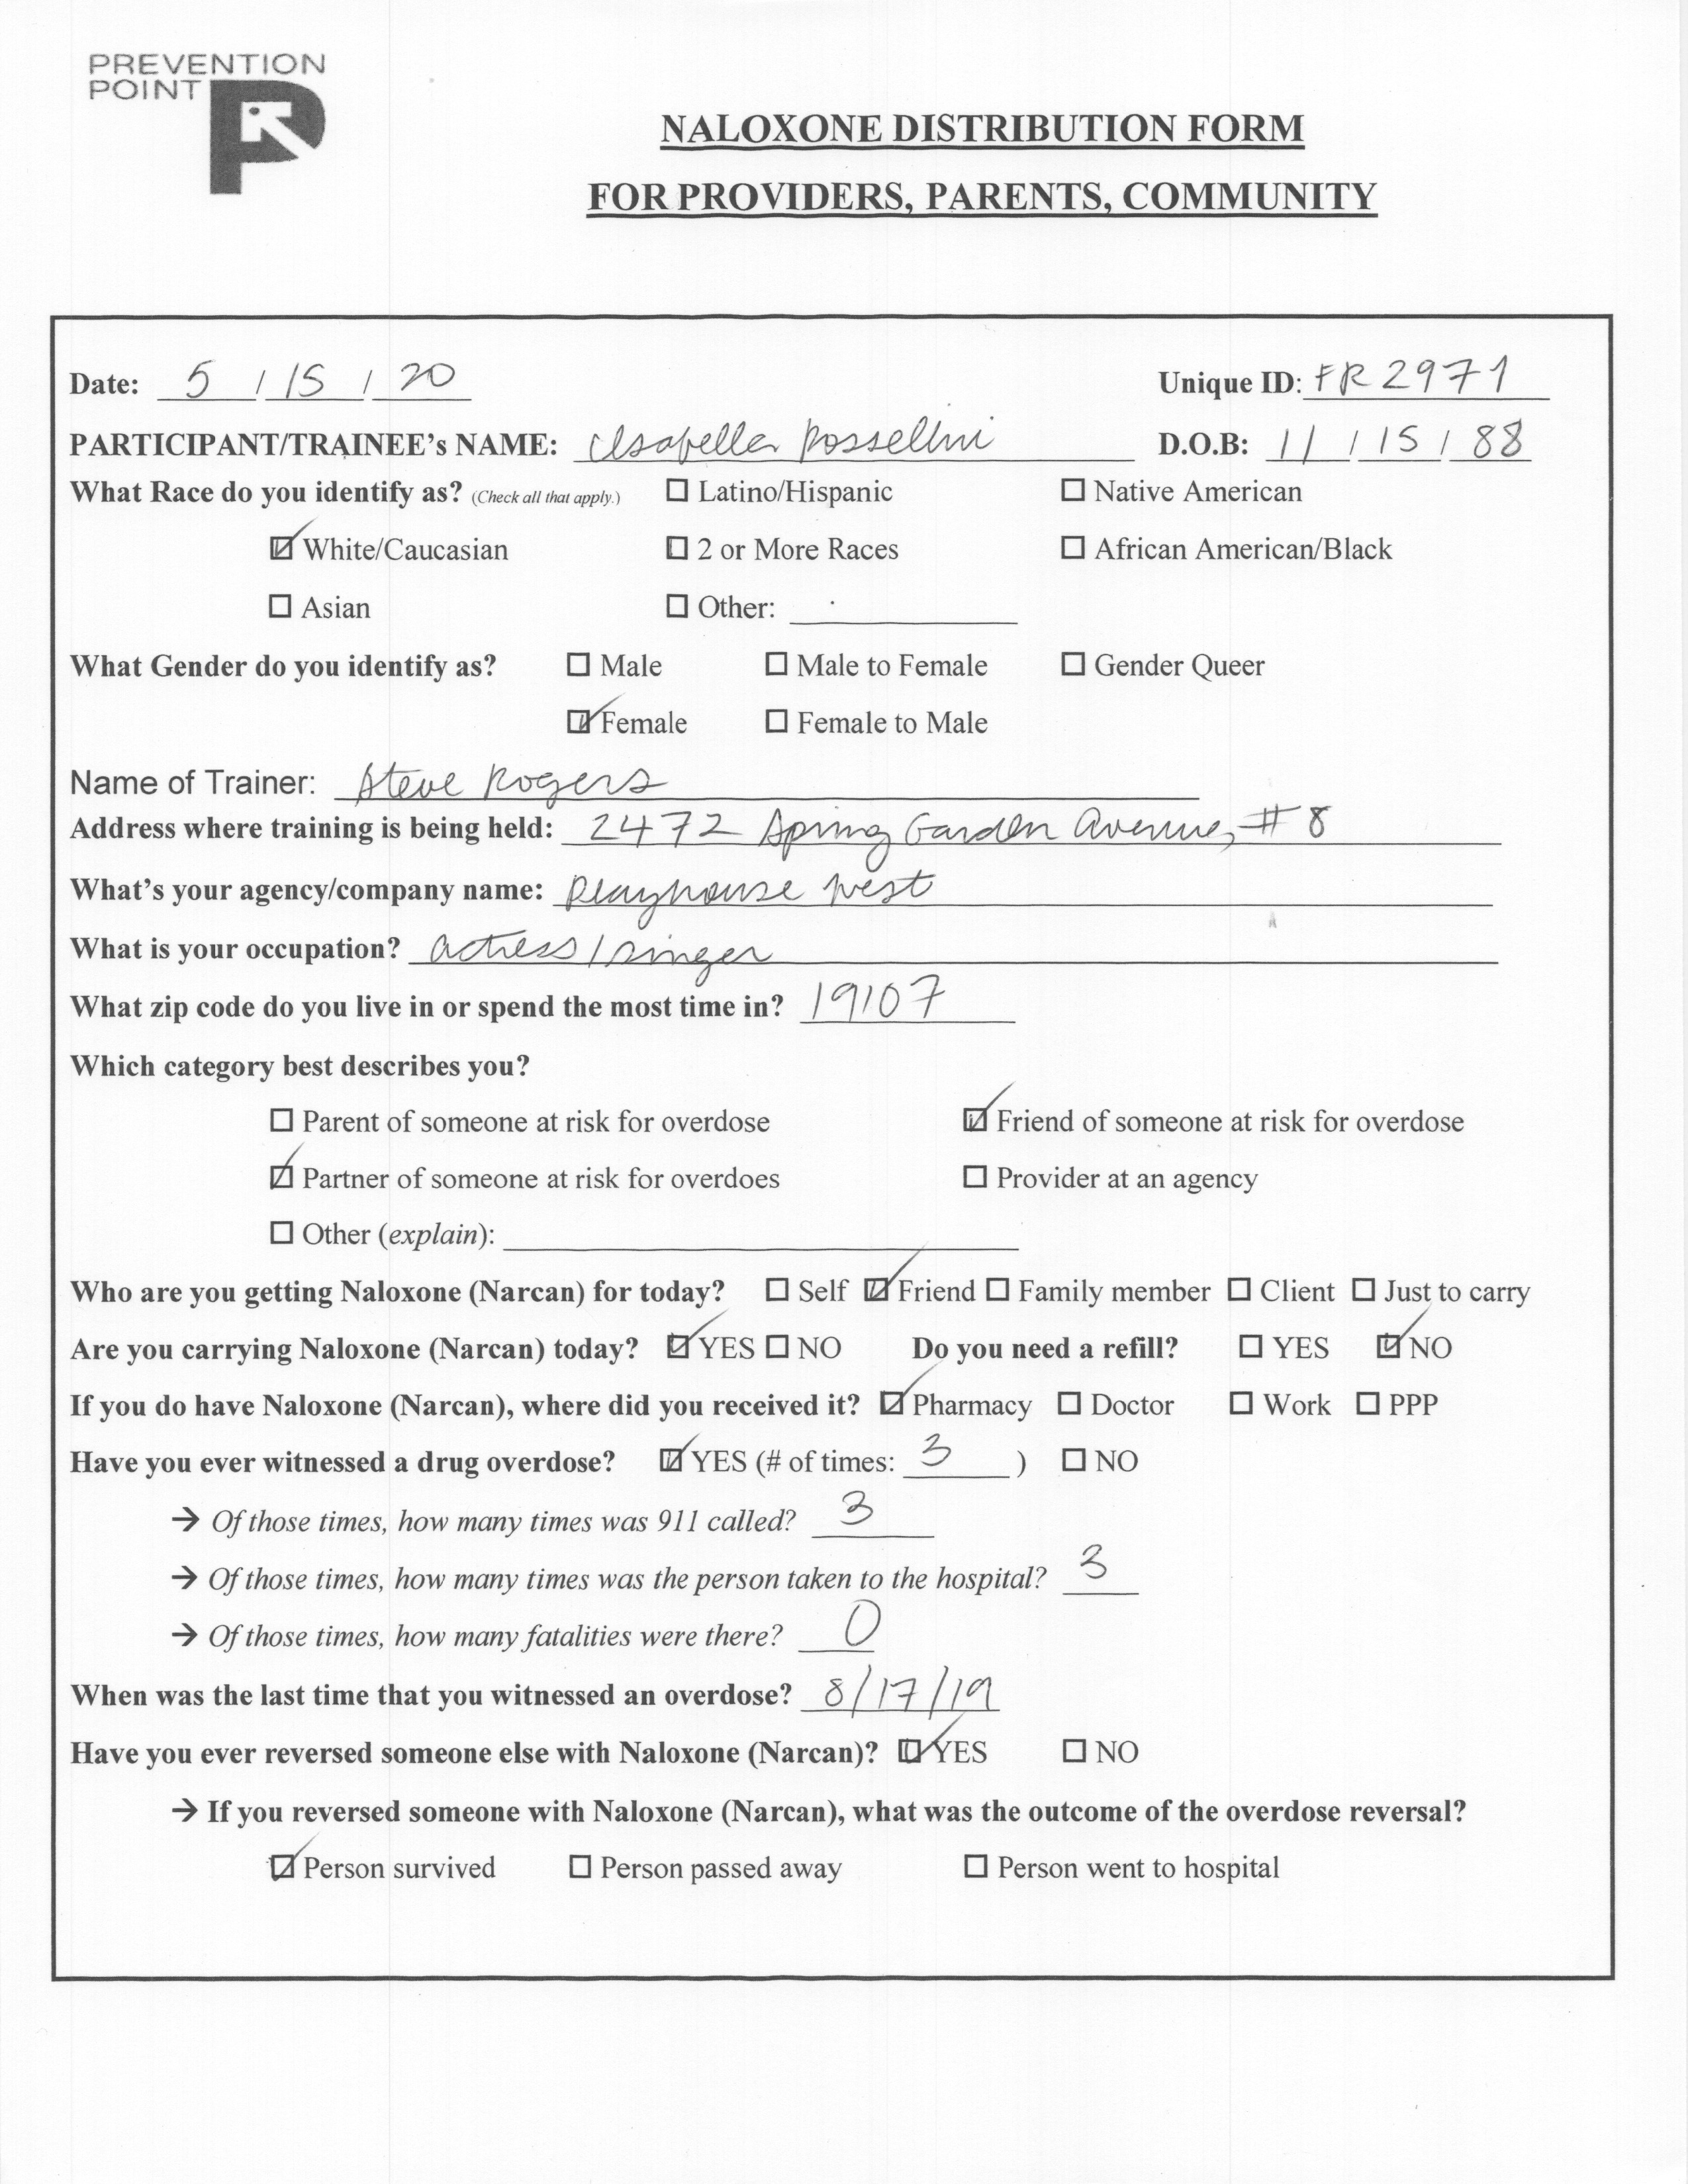 PREVENTION
POINT
NALOXONE DISTRIBUTION FORM
FOR PROVIDERS, PARENTS, COMMUNITY
Date: 5 / 15 / 20 Unique ID: FR2971
PARTICIPANT/TRAINEE's NAME: Isabella Rossellini D.O.B: 11 / 15 / 88
What Race do you identify as? (Check all that apply.) ☐ Latino/Hispanic ☐ Native American
☑ White/Caucasian ☐ 2 or More Races ☐ African American/Black
☐ Asian ☐ Other:
What Gender do you identify as? ☐ Male ☐ Male to Female ☐ Gender Queer
☑ Female ☐ Female to Male
Name of Trainer: Steve Rogers
Address where training is being held: 2472 Spring Garden Avenue, #8
What's your agency/company name: Playhouse West
What is your occupation? actress/singer
What zip code do you live in or spend the most time in? 19107
Which category best describes you?
☐ Parent of someone at risk for overdose ☑ Friend of someone at risk for overdose
☑ Partner of someone at risk for overdoes ☐ Provider at an agency
☐ Other (explain):
Who are you getting Naloxone (Narcan) for today? ☐ Self ☑ Friend ☐ Family member ☐ Client ☐ Just to carry
Are you carrying Naloxone (Narcan) today? ☑ YES ☐ NO Do you need a refill? ☐ YES ☑ NO
If you do have Naloxone (Narcan), where did you received it? ☑ Pharmacy ☐ Doctor ☐ Work ☐ PPP
Have you ever witnessed a drug overdose? ☑ YES (# of times: 3 ) ☐ NO
→ Of those times, how many times was 911 called? 3
→ Of those times, how many times was the person taken to the hospital? 3
→ Of those times, how many fatalities were there? 0
When was the last time that you witnessed an overdose? 8/17/19
Have you ever reversed someone else with Naloxone (Narcan)? ☑ YES ☐ NO
→ If you reversed someone with Naloxone (Narcan), what was the outcome of the overdose reversal?
☑ Person survived ☐ Person passed away ☐ Person went to hospital